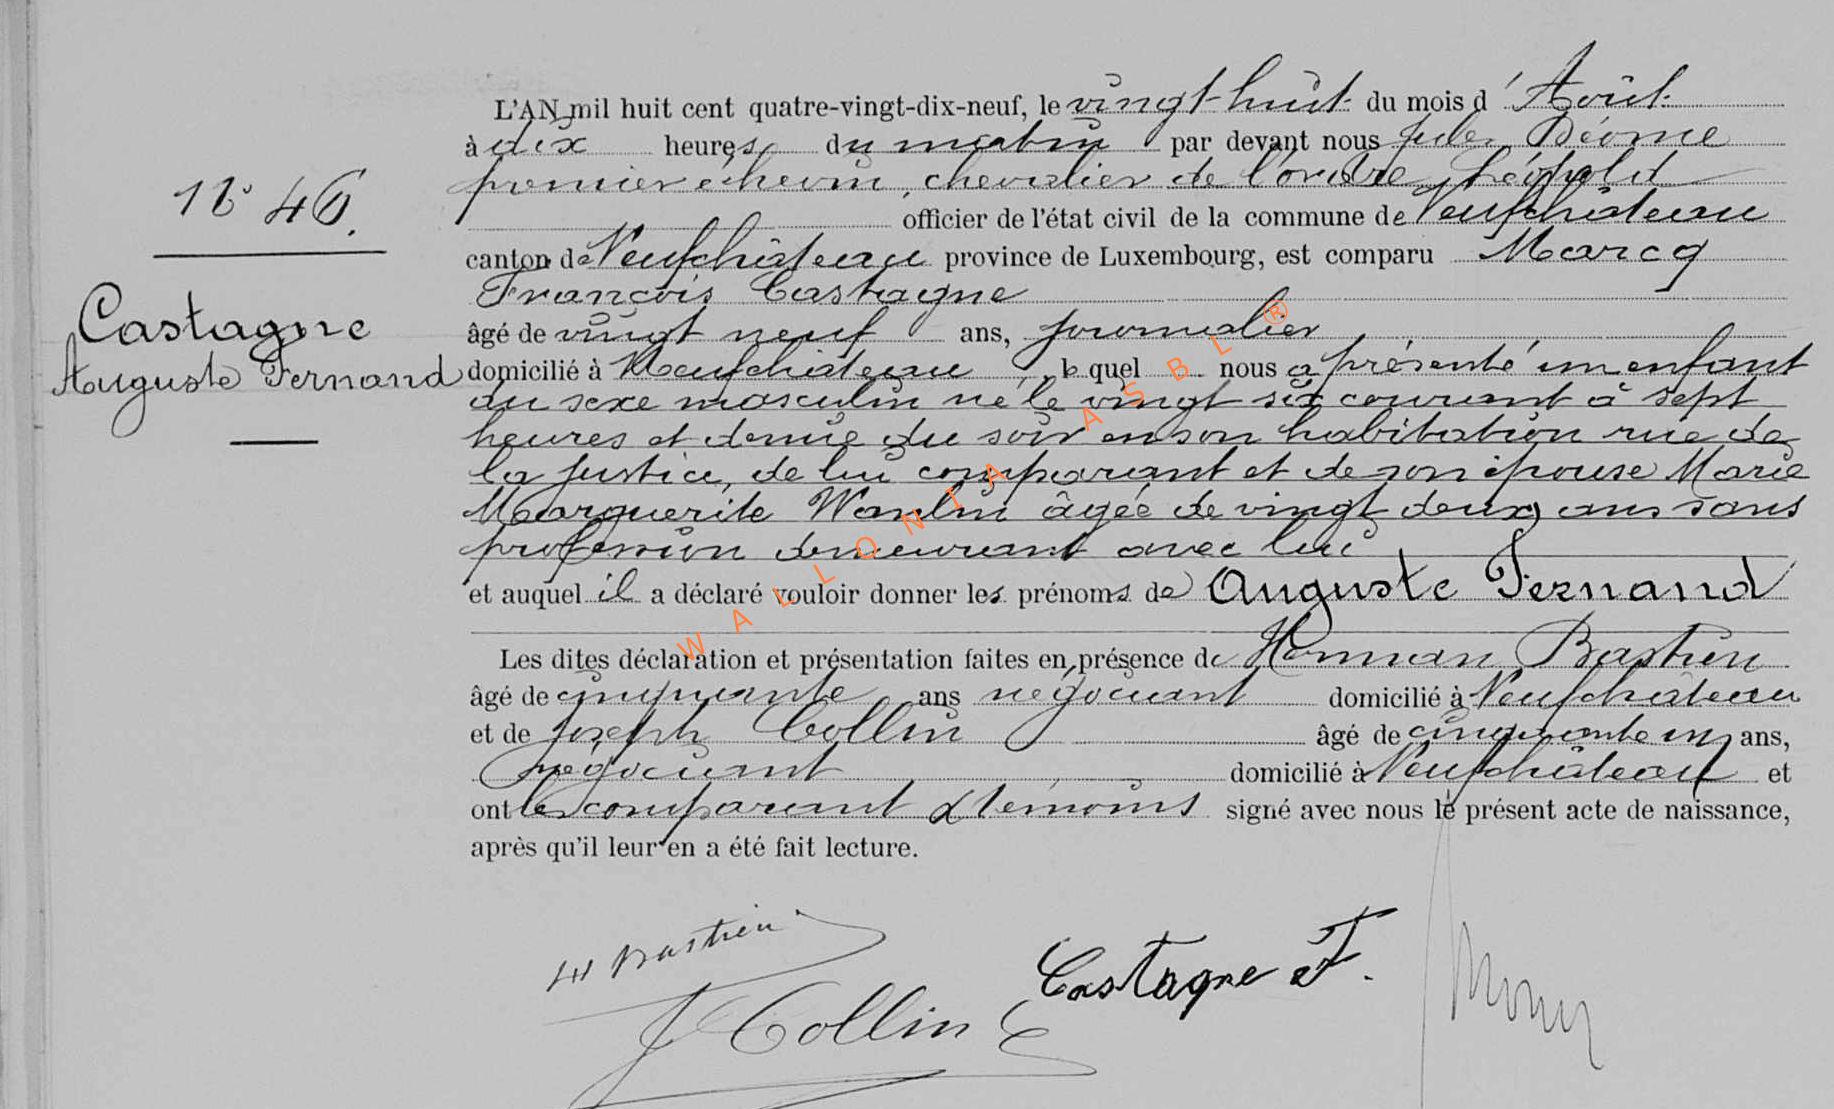 L'AN mil huit cent quatre-vingt-dix-neuf, le vingt-huit du mois d'Août
à dix heures du matin par devant nous Jules
premier échevin, chevalier de l'ordre Léopold
officier de l'état civil de la commune de Neufchâteau
canton de Neufchâteau province de Luxembourg, est comparu Marcq
François Castagne
N° 46.
Castagne
Auguste Fernand
âgé de vingt neuf ans, journalier
domicilié à Neufchâteau, lequel nous a présenté un enfant
du sexe masculin né le vingt six courant à sept
heures et demie du soir en son habitation rue de
la Justice, de lui comparant et de son épouse Marie
Marguerite Wanlin âgée de vingt deux ans sans
profession demeurant avec lui
et auquel il a déclaré vouloir donner les prénoms de Auguste Fernand
Les dites déclaration et présentation faites en présence de Herman Bastien
âgé de cinquante ans négociant domicilié à Neufchâteau
et de Joseph Collin âgé de cinquante un ans,
négociant domicilié à Neufchâteau et
ont les comparant & témoins signé avec nous le présent acte de naissance,
après qu'il leur en a été fait lecture.
WALLONIA ASBL ®
H Bastien
Castagne F.
J Collin